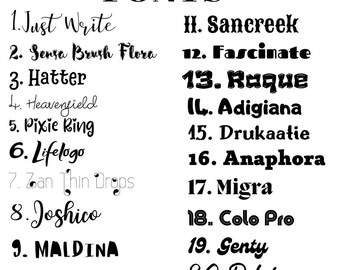 FONTS
1. Just Write
2. Sensa Brush Flora
3. Hatter
4. Heavenfield
5. Pixie Ring
6. Lifelogo
7. Zan Thin Drops
8. Joshico
9. MALDINA
11. Sancreek
12. Fascinate
13. Raque
14. Adigiana
15. Drukaatie
16. Anaphora
17. Migra
18. Colo Pro
19. Genty